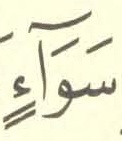 سَوَآءٍ